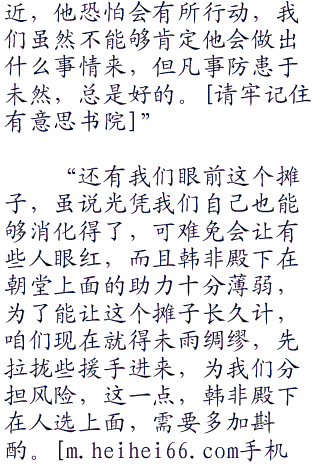 近，他恐怕会有所行动，我
们虽然不能够肯定他会做出
什么事情来，但凡事防患于
未然，总是好的。[请牢记住
有意思书院]”
“还有我们眼前这个摊
子，虽说光凭我们自己也能
够消化得了，可难免会让有
些人眼红，而且韩非殿下在
朝堂上面的助力十分薄弱，
为了能让这个摊子长久计，
咱们现在就得未雨绸缪，先
拉拢些援手进来，为我们分
担风险，这一点，韩非殿下
在人选上面，需要多加斟
酌。[m.heihei66.com手机